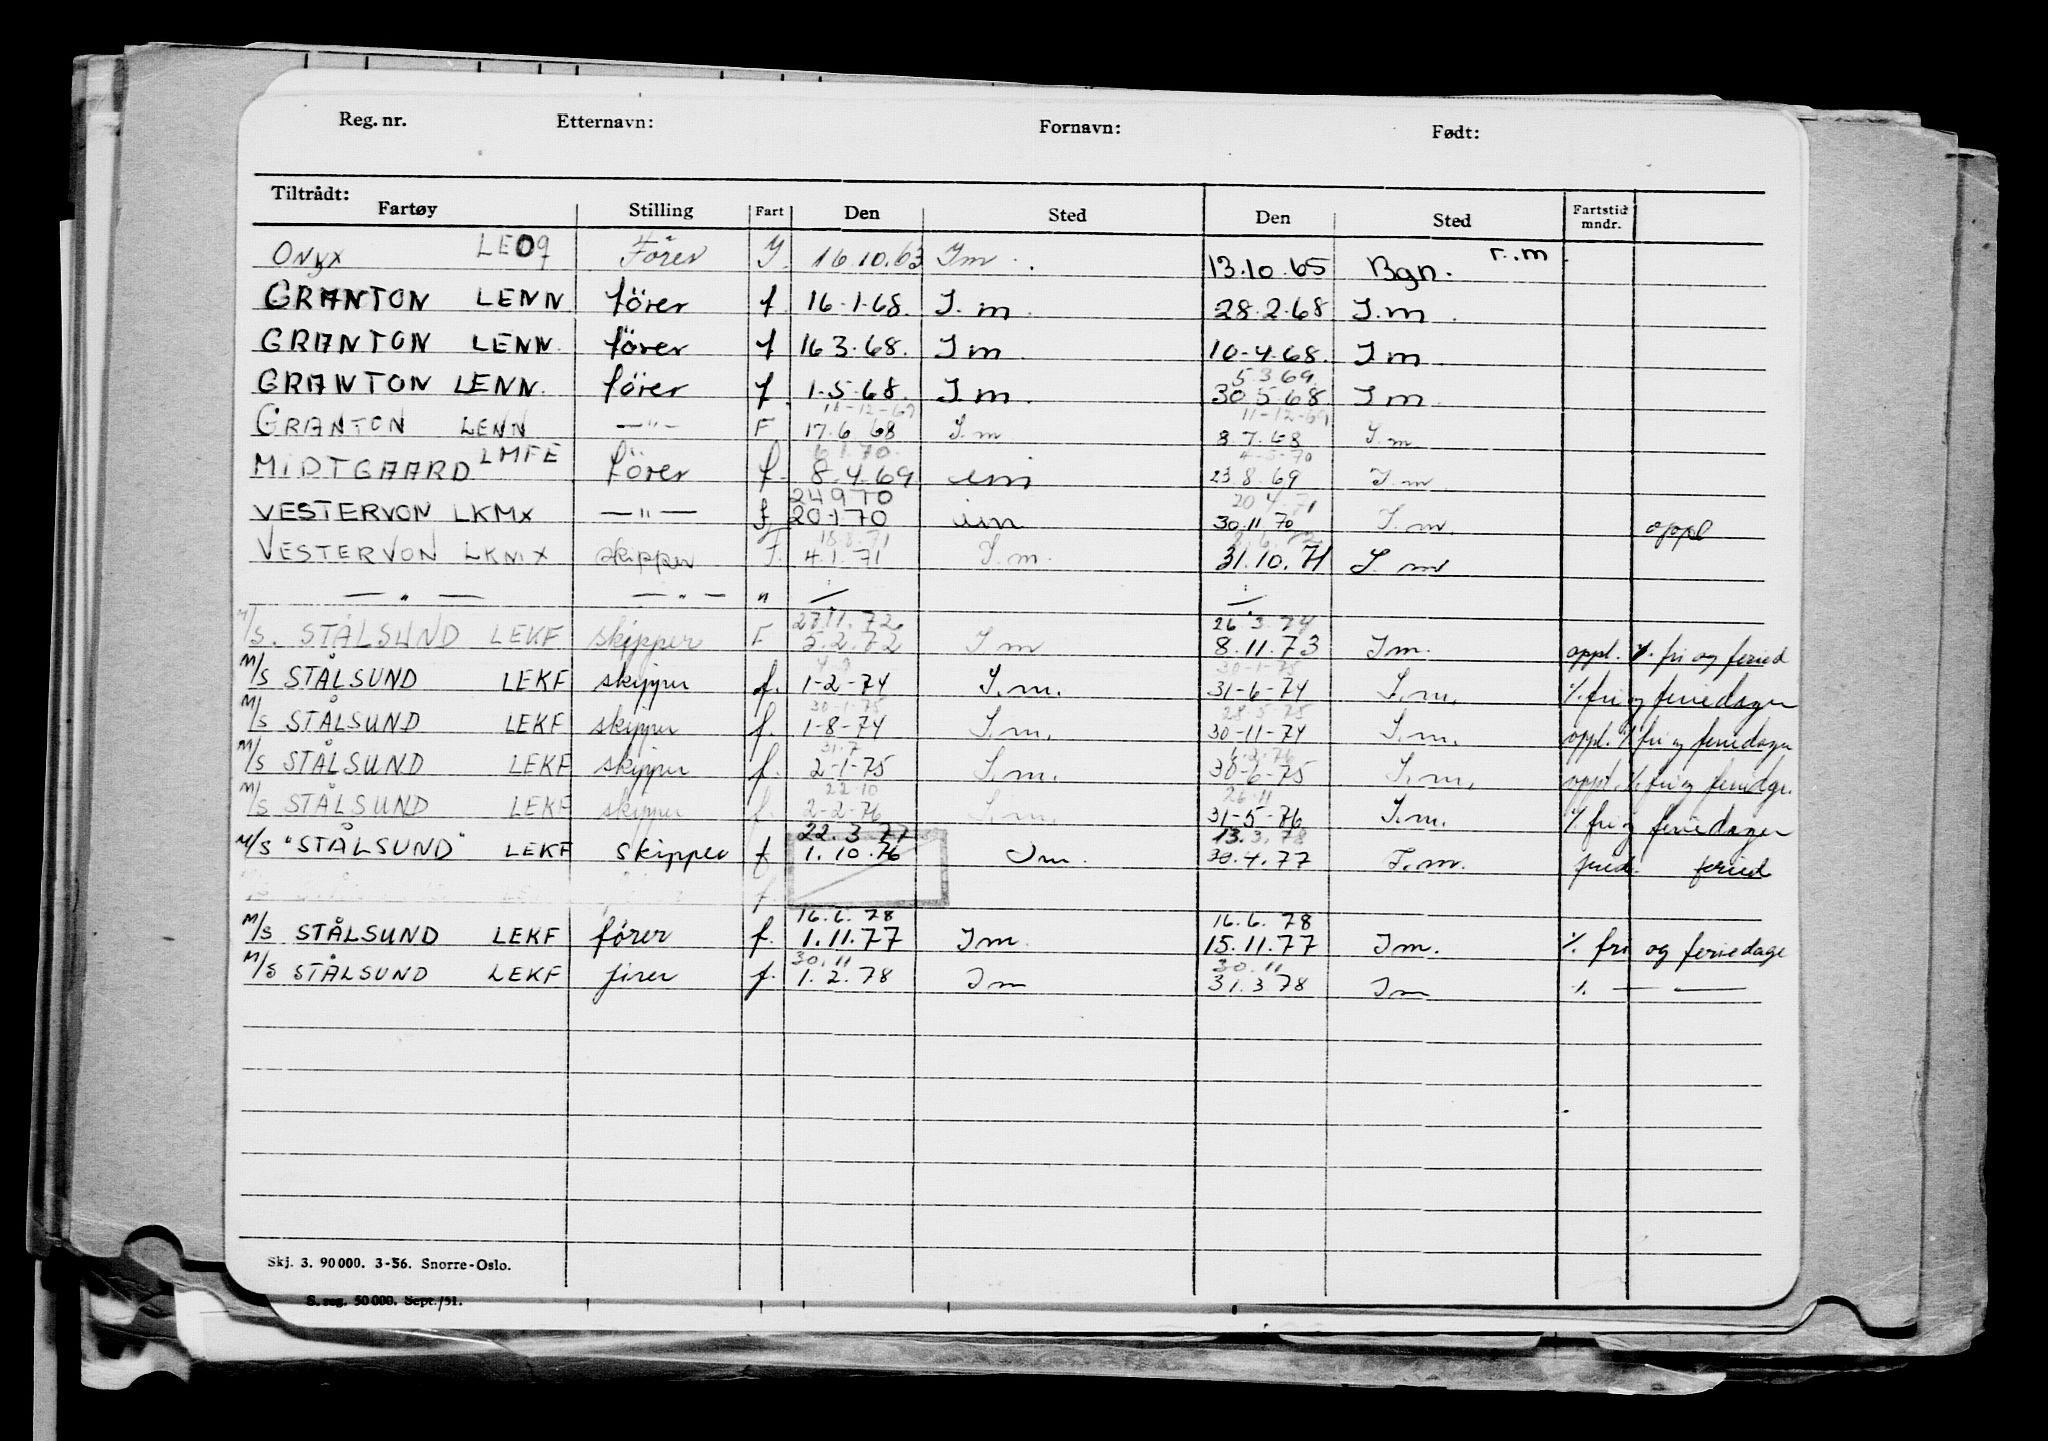 Reg. nr. Etternavn: Fornavn: Født:
Tiltrådt:
Fartøy Stilling Fart Den Sted Den Sted Fartstid mndr.
Onyx LEOq Förer Y. 16.10.63 Im. 13.10.65 Bgn. r.m.
GRANTON LENN förer f. 16-1-68. I.m 28.2.68 I.m.
GRANTON LENN. förer f 16 3.68. I m 10-4.68. I m
5.3 69.
GRANTON LENN. förer f. 1-5-68. I m. 30 5.68. I m.
11-12-69 11-12-69
GRANTON LENN —"— F 17.6 68 I.m 8.7.68 I.m
6.1.70. 4-5-70
MIDTGAARD LMFE förer f. 8.4.69 im 23.8.69 I.m
24970 20.4.71
VESTERVON LKMX —"— f 20-1 70 im 30.11 70 I.m. oppl
18.8.71
VESTERVON LKMX skipper F. 4.1.71 I.m. 31.10.71 I. m
— " — — " — "
27.11.72 26 3.74
M/S. STÅLSUND LEKF skipper F 5.2.72 I m 8.11.73 I m. oppl. %. fri og feried
30-1-75
M/S STÅLSUND LEKF skipper f. 1-2-74 I.m. 31-6-74 I.m. %. fri og feriedager
30-1-75 28.5.75
M/S STÅLSUND LEKF skipper f. 1-8-74 I.m. 30-11-74 I.m. oppl. % fri og feriedager
31.7 6.2.76
M/S STÅLSUND LEKF skipper f. 2-1-75 I.m. 30-6-75 I.m. oppl. %. fri og feriedgr.
22.10 26.11
M/S STÅLSUND LEKF skipper f. 2-2-76 I.m. 31-5-76 I.m. % fri og feriedager
22.3.77 13.3.78
M/S "STÅLSUND" LEKF skipper f 1.10.76 Im. 30.4.77 I.m. feried
16.6.78 16.6.78
M/S STÅLSUND LEKF fører f. 1.11.77 Im. 15.11.77 Im. %. fri og feriedage
30.11 30.11
M/S STÅLSUND LEKF fører f. 1.2.78 Im 31.3 78 Im %. — —
Skj. 3. 90000. 3-56. Snorre-Oslo.
S. reg. 50000. Sept./51.